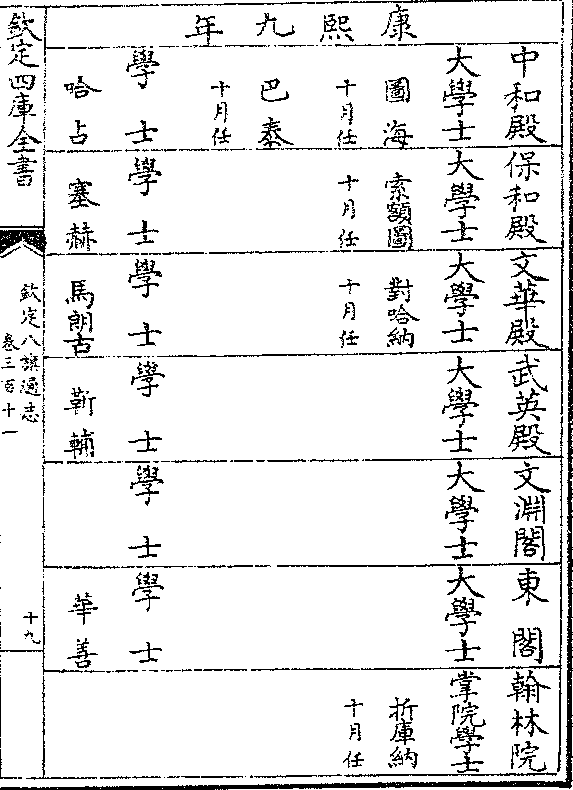 康熙九年
中和殿
大學士
圖海
十月任
巴泰
十月任
學士
哈占
保和殿
大學士
索額圖
十月任
學士
塞赫
文華殿
大學士
對哈納
十月任
學士
馬朗古
武英殿
大學士
學士
靳輔
文淵閣
大學士
學士
東閣
大學士
學士
華善
翰林院
掌院學士
折庫納
十月任
欽定四庫全書
欽定八旗通志
卷三百十一
十九